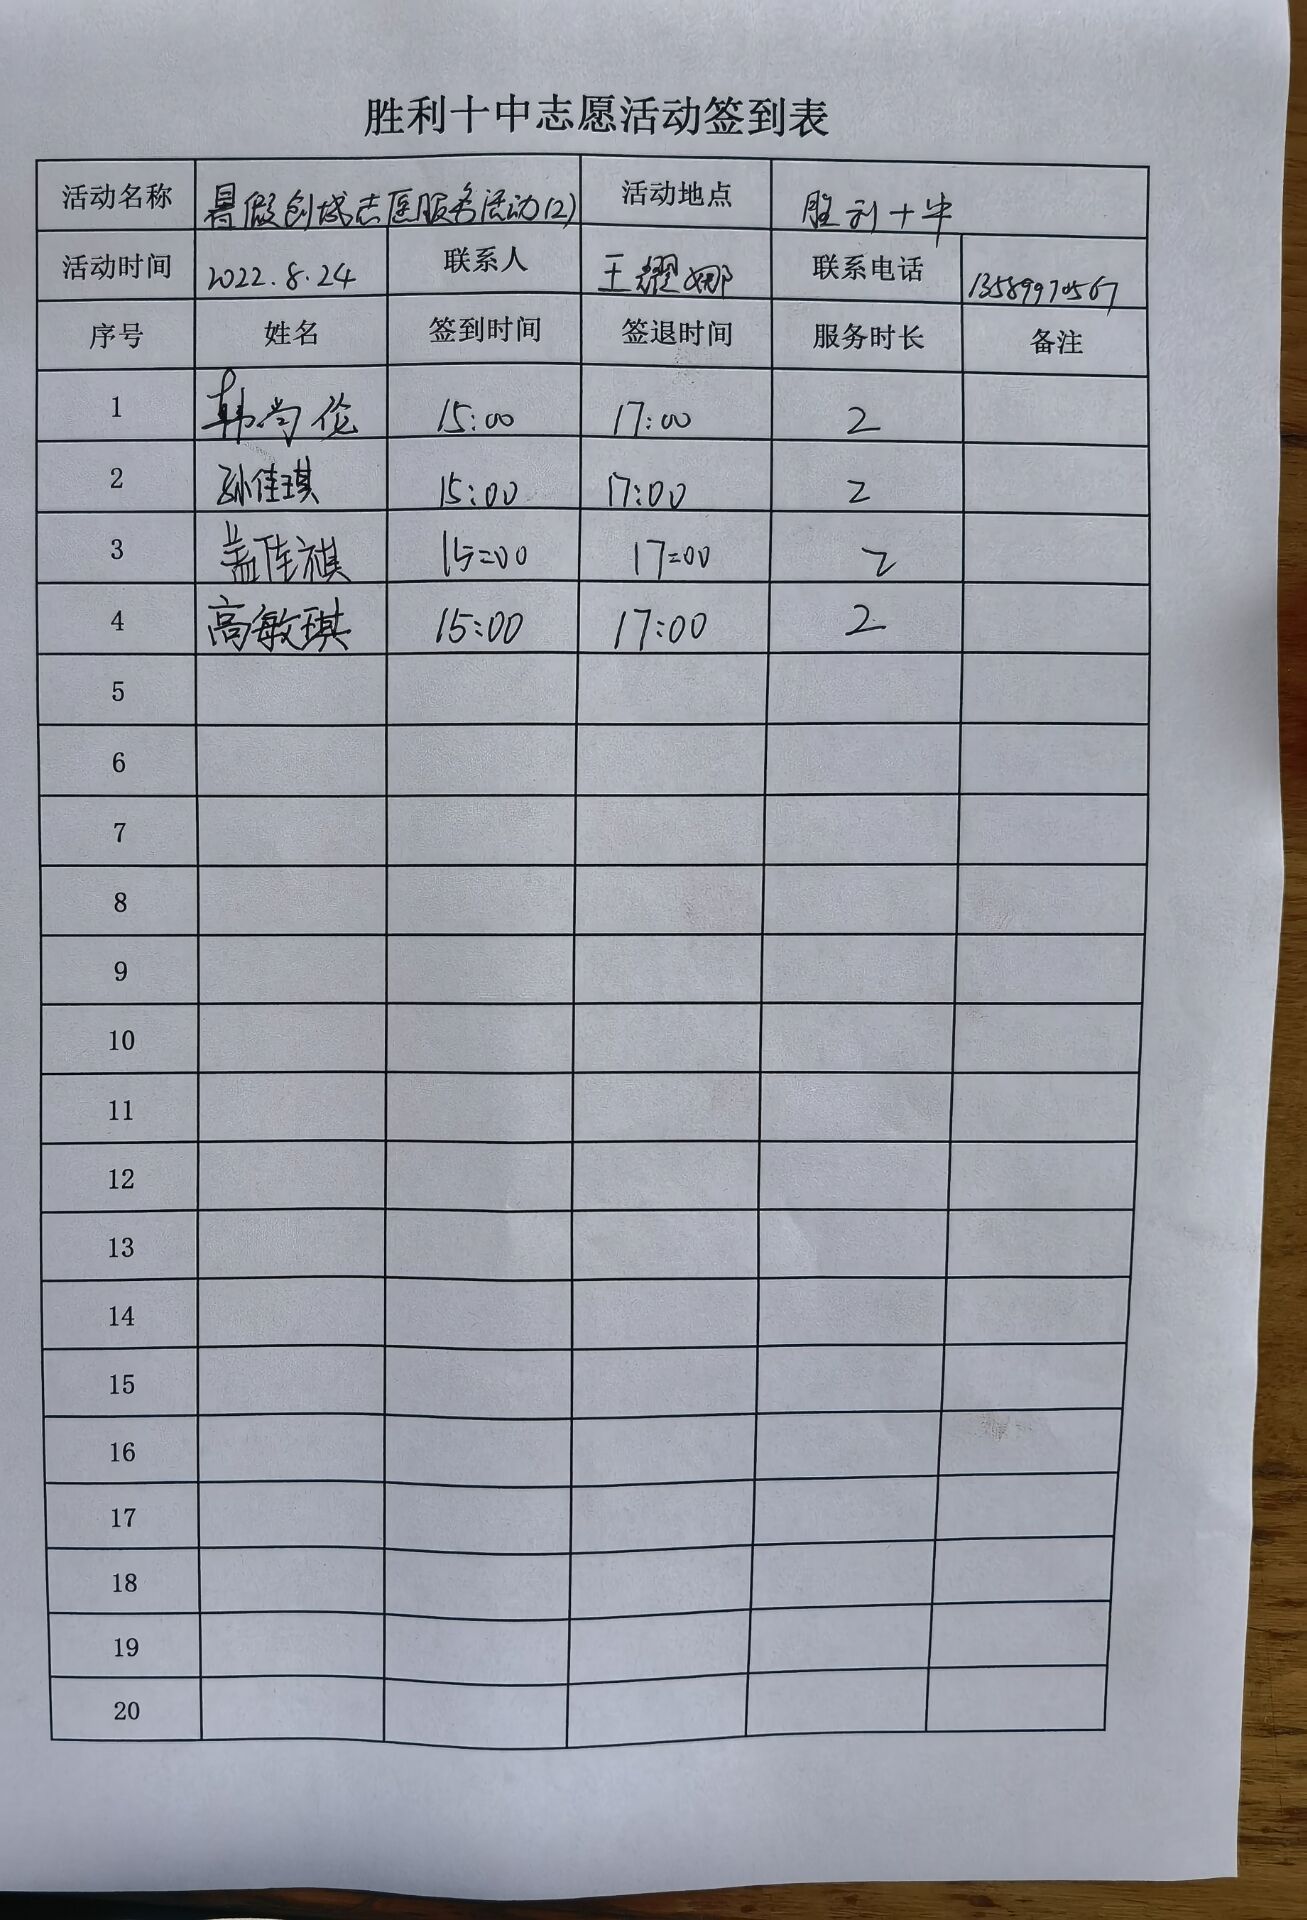 胜利十中志愿活动签到表
活动名称 暑假创城志愿服务活动(2) 活动地点 胜利十中
活动时间 2022.8.24 联系人 王耀娜 联系电话 13589970567
序号 姓名 签到时间 签退时间 服务时长 备注
1 韩尚伦 15:00 17:00 2
2 孙佳琪 15:00 17:00 2
3 盖佳祺 15:00 17:00 2
4 高敏琪 15:00 17:00 2
5
6
7
8
9
10
11
12
13
14
15
16
17
18
19
20